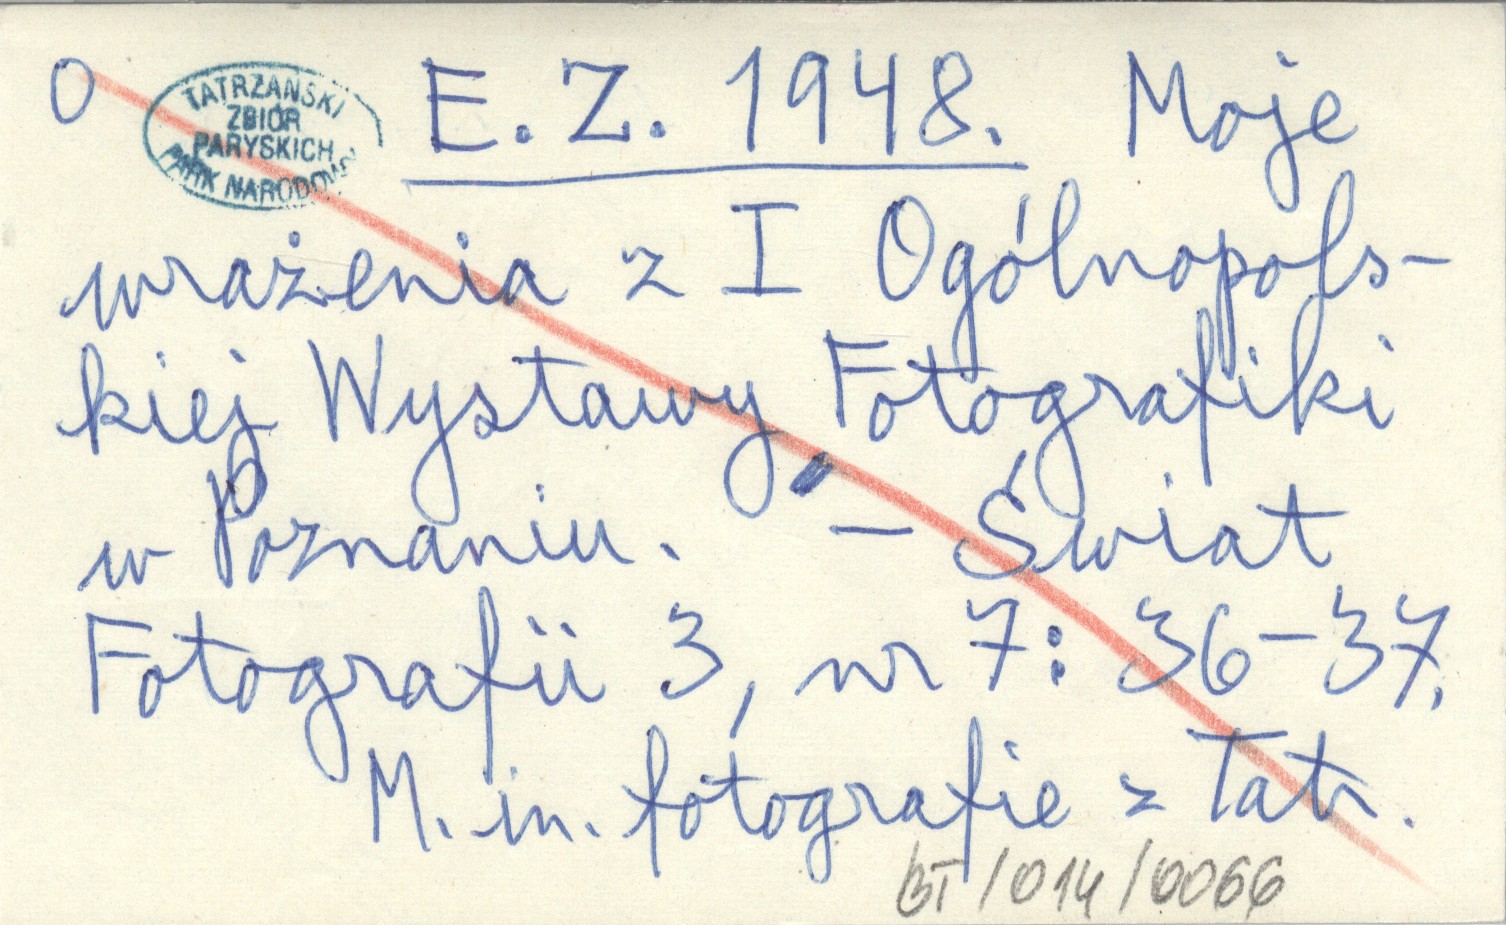 O
TATRZAŃSKI
ZBIÓR
PARYSKICH
PARK NARODOWY
E. Z. 1948. Moje
wrażenia z I Ogólnopols-
kiej Wystawy Fotografiki
w Poznaniu. — Świat
Fotografii 3, nr 7: 36-37.
M. in. fotografie z Tatr.
BT/014/0066